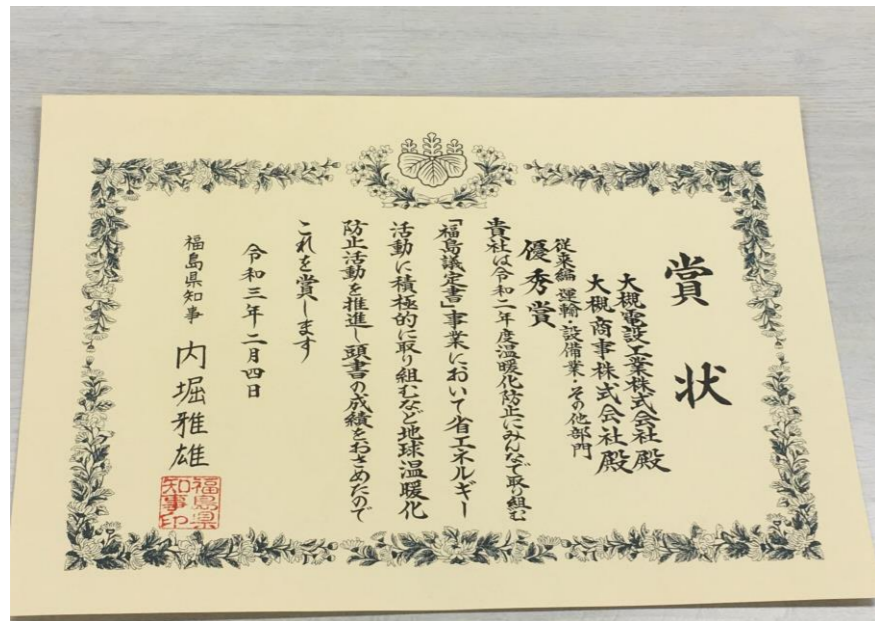 賞状
大槻電設工業株式会社殿
大槻商事株式会社殿
従来編 運輸・設備業・その他部門
優秀賞
貴社は令和二年度温暖化防止にみんなで取り組む
「福島議定書」事業において省エネルギー
活動に積極的に取り組むなど地球温暖化
防止活動を推進し頭書の成績をおさめたので
これを賞します
令和三年二月四日
福島県知事 内堀雅雄
福島県
知事印